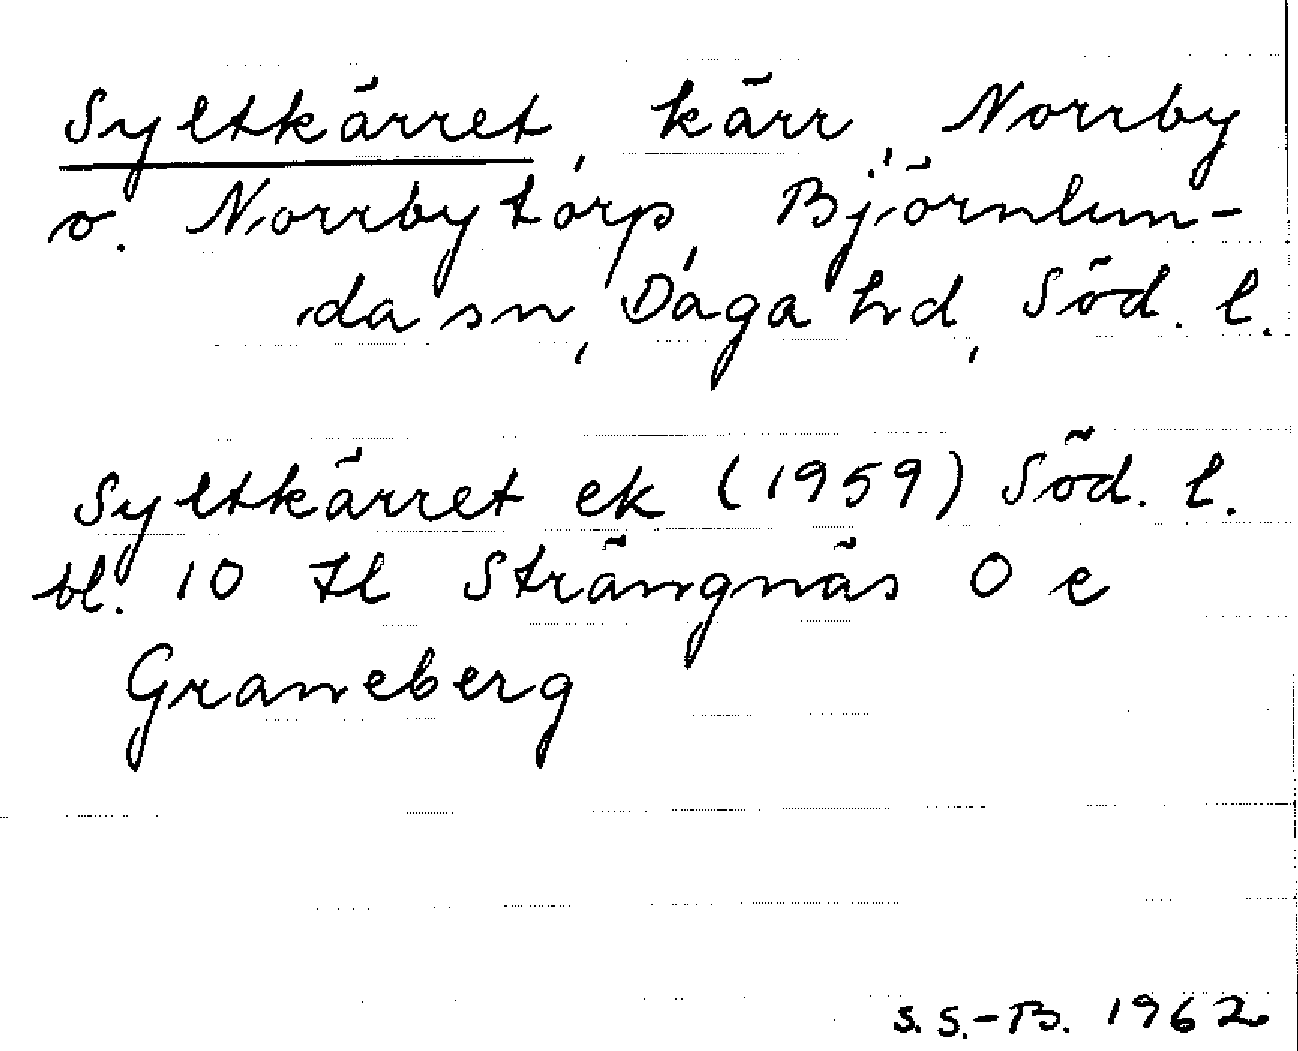 Syltkärret, kärr, Norrby
o. Norrbytorp, Björnlun-
da sn, Daga hd, Söd. l.
Syltkärret ek (1959) Söd. l.
bl. 10 Il Strängnäs O e
Graneberg
S. S.-B. 1962